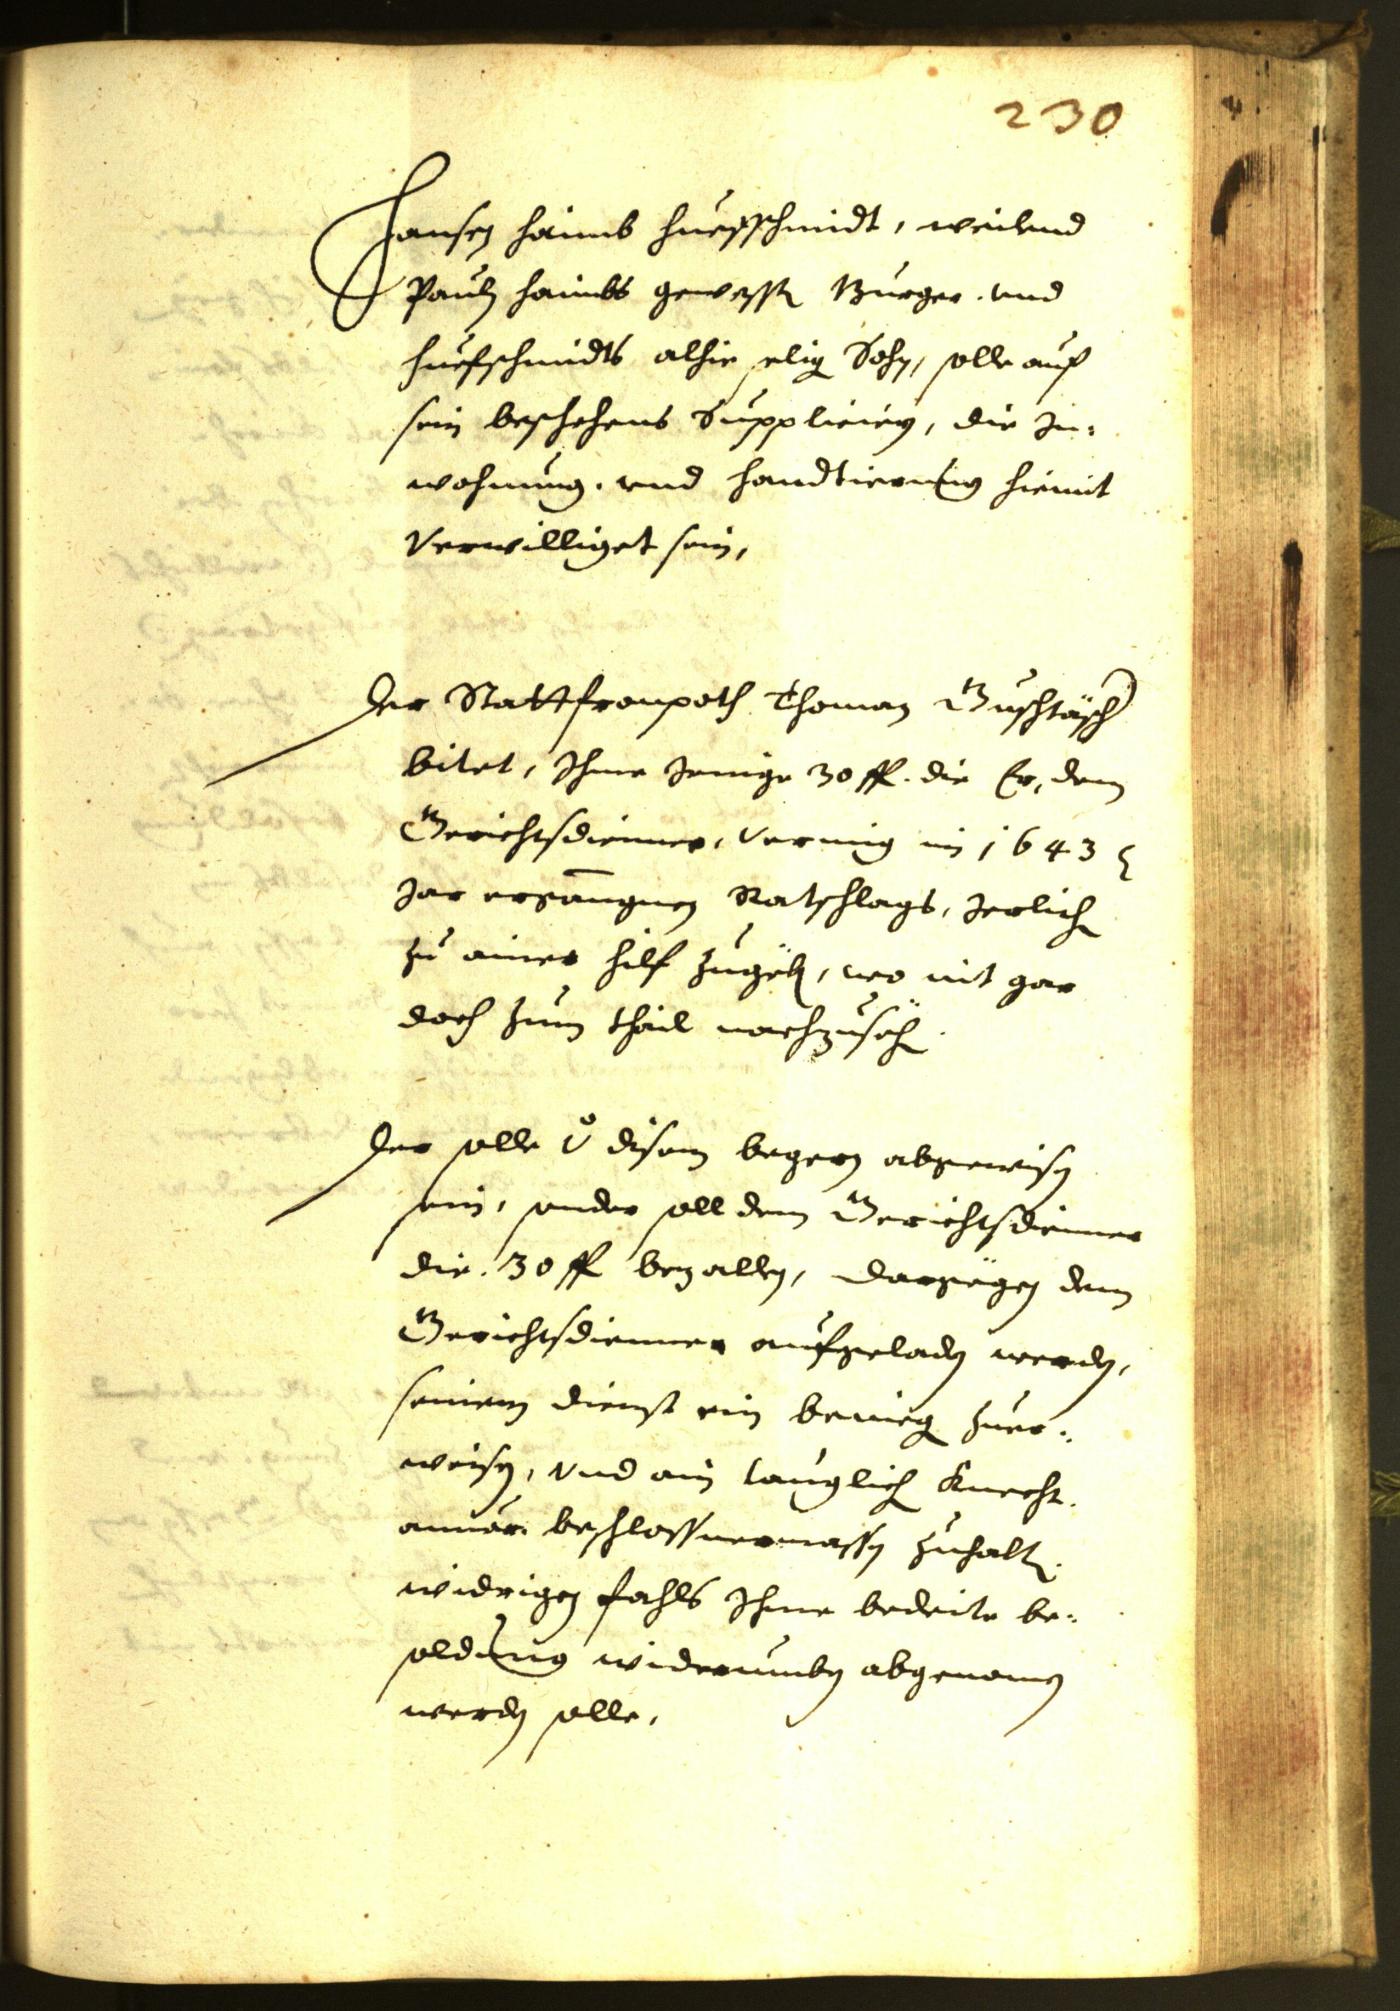 230
Hansen Haimb Huefschmidt, weilend
Pauln Haimbs gewessten Burger und
Huefschmidts alhie elig Sohn, solle auf
sein beschehens Supplicieren, die In-
wohnung und Handtierung hiemit
verwilliget sein,
Der Stattfronpoth Thoman
bitet, Ihme Jenige 30 fl. die Er, dem
Gerichtsdienner, vermig im 1643
Jar ergangnen Ratschlags, Jerlich
zu ainer hilf zugeben, wo nit gar
doch zum thail nachzusehen.
Der solle disem begern abgewisen
sein, sonder soll dem Gerichtsdienner
die 30 fl bezallen, dargegen dem
Gerichtsdienner aufgeladen werden,
seinem dienst ein beniegen zuer-
weisen, und ain tauglich Knecht
beschlossnermassen zuhalten.
widrigen fahls Ihme bedeite be-
soldung widerumben abgenomen
werden solle,